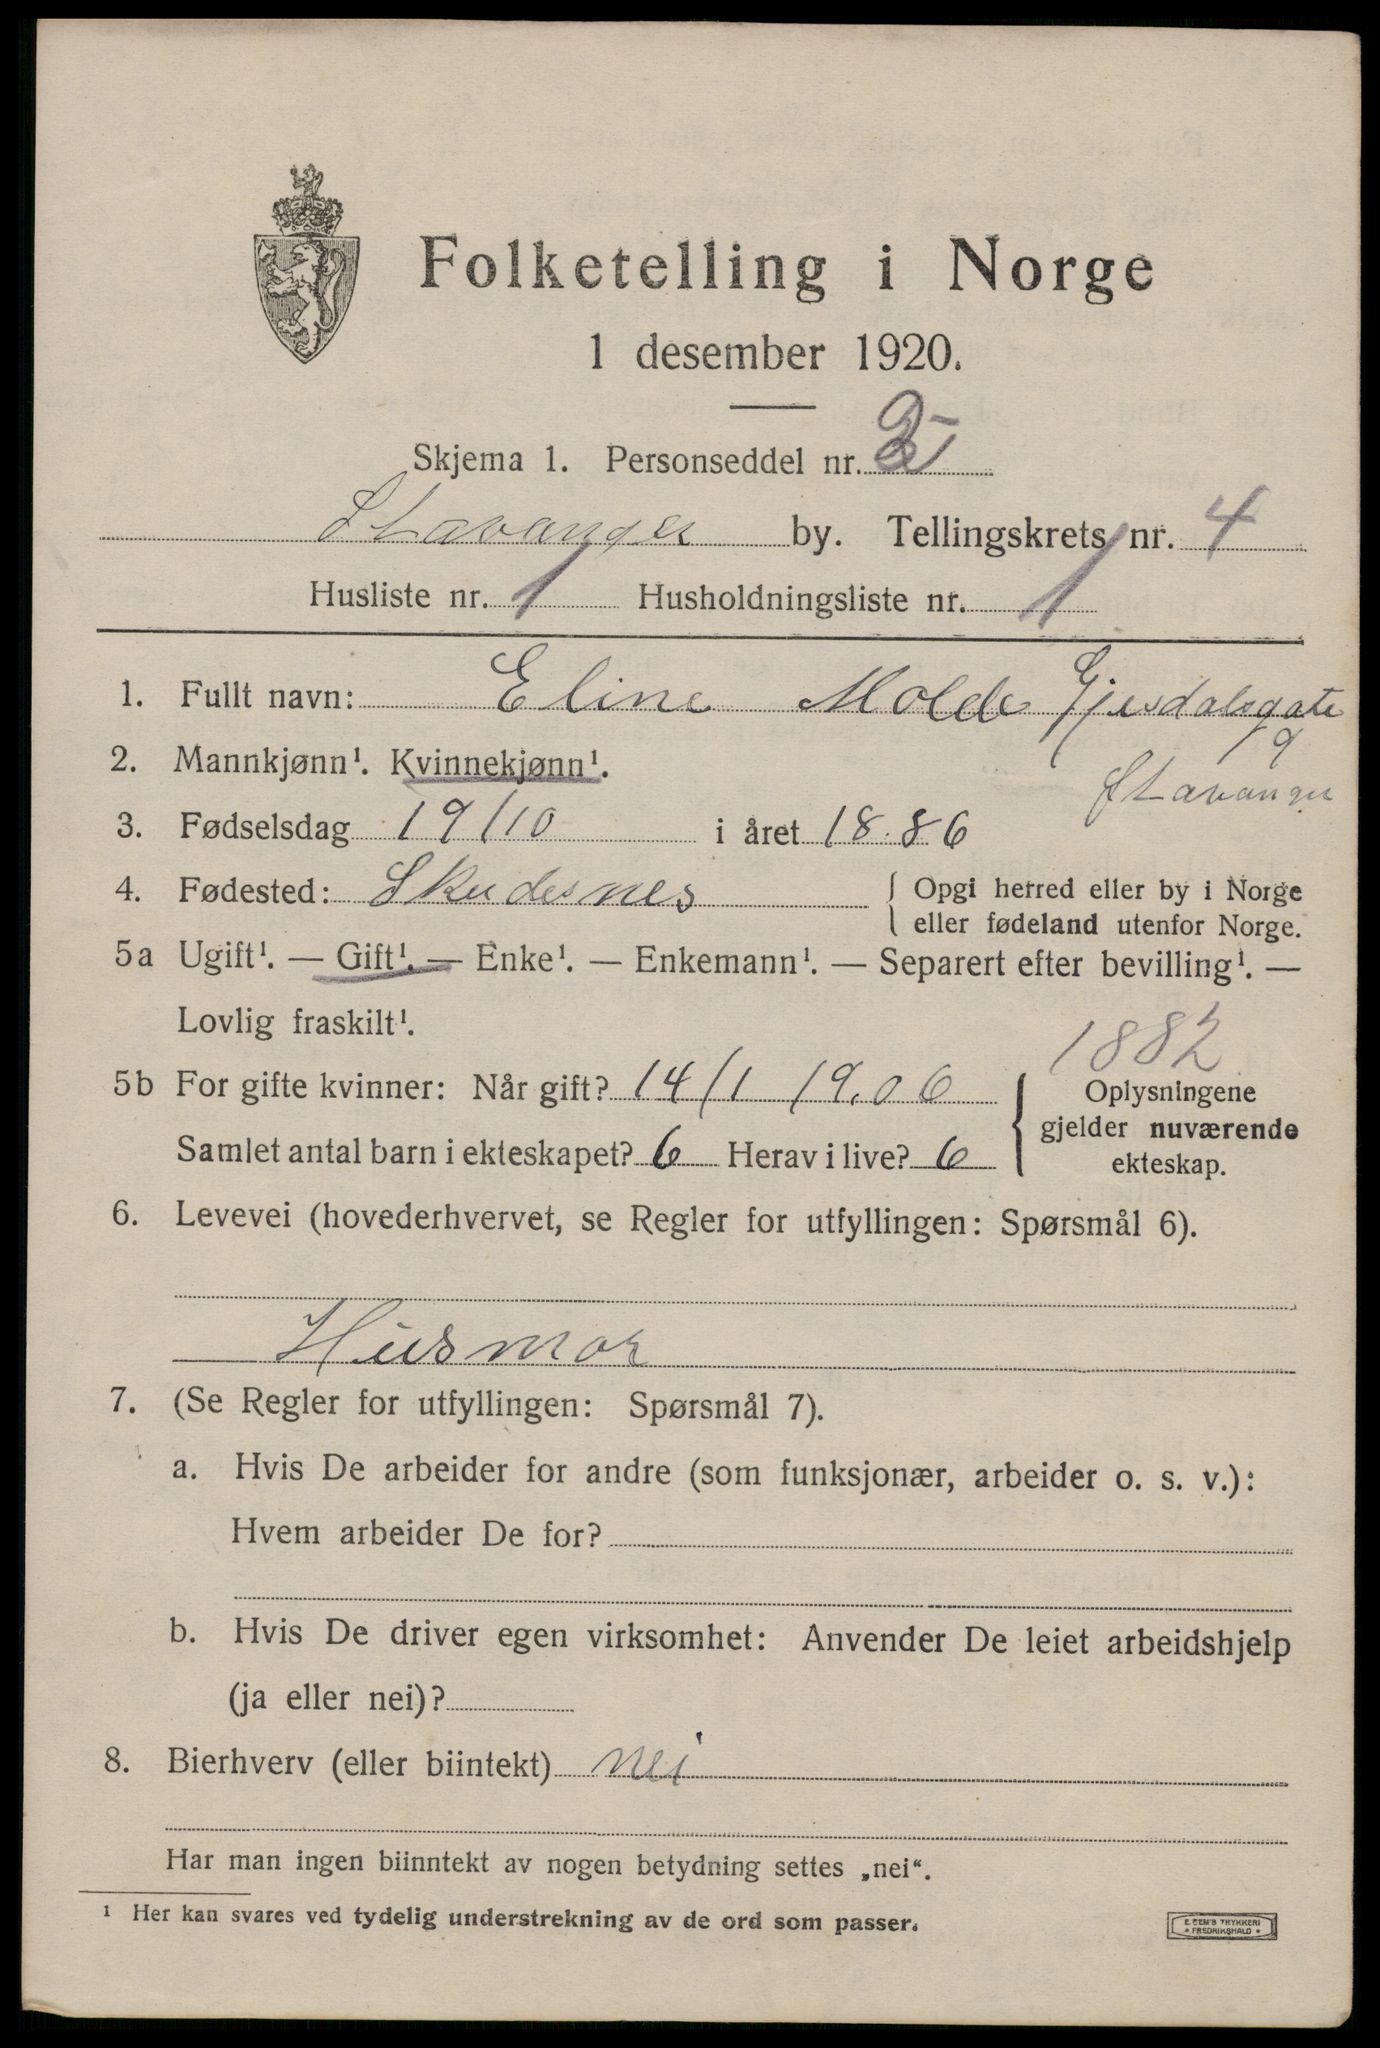 Folketelling i Norge
1 desember 1920.
Skjema 1. Personseddel nr. 2
Stavanger by. Tellingskrets nr. 4
Husliste nr. 1 Husholdningsliste nr. 1
1. Fullt navn: Eline Molde Gjesdalsgate
9
2. Mannkjønn¹. Kvinnekjønn¹.
Stavanger
3. Fødselsdag 19/10 i året 1886
4. Fødested: Skudesnes { Opgi herred eller by i Norge
eller fødeland utenfor Norge.
5a Ugift¹. — Gift¹. — Enke¹. — Enkemann¹. — Separert efter bevilling¹. —
Lovlig fraskilt¹.
1882
5b For gifte kvinner: Når gift? 14/1 19.06 { Oplysningene
gjelder nuværende
Samlet antal barn i ekteskapet? 6 Herav i live? 6 ekteskap.
6. Levevei (hovederhvervet, se Regler for utfyllingen: Spørsmål 6).
Husmor
7. (Se Regler for utfyllingen: Spørsmål 7).
a. Hvis De arbeider for andre (som funksjonær, arbeider o. s. v.):
Hvem arbeider De for?
b. Hvis De driver egen virksomhet: Anvender De leiet arbeidshjelp
(ja eller nei)?
8. Bierhverv (eller biintekt) nei
Har man ingen biinntekt av nogen betydning settes „nei“.
¹ Her kan svares ved tydelig understrekning av de ord som passer.
E. SEM'S TRYKKERI
• FREDRIKSHALD •